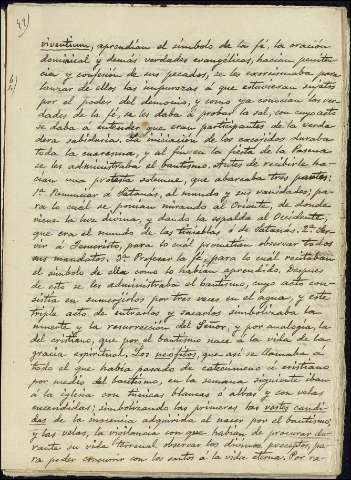 42)
viventium, aprendian el símbolo de la fé, la oración
dominical y demás verdades evangélicas, hacian peniten
cia y confesión de sus pecados, se les exorcismaba para
lanzar de ellos las impurezas á que estuvieran sujetos
por el poder del demonio, y como ya conocian las ver-
dades de la fé, se les daba á probar la sal, con cuyo acto
se daba á entender que eran participantes de la verda-
dera sabiduria. La iniciación de los duraba
toda la cuaresma, y al fin en la fiesta de la Pascua
se les administraba el bautismo. Antes de recibirle, ha-
cian una protesta solemne, que abarcaba tres partes:
1ª Renunciar á Satanás, al mundo y sus vanidades; pa-
ra lo cual se ponian mirando al Oriente, de donde
viene la luz divina, y dando la espalda al Occidente,
que era el mundo de las tinieblas ó de Satanás. 2ª Ser-
vir á Jesucristo, para lo cuál prometian observar todos
sus mandatos. 3ª Profesar la fé, para lo cuál recitaban
el símbolo de ella como lo habian aprendido. Despues
de esto se les administraba el bautismo, cuyo acto con-
sistia en sumergirlos por tres veces en el agua, y este
triple acto de entrarlos y sacarlos simbolizaba la
muerte y la resurrección del Señor, y por analogia, la
del cristiano, que por el bautismo nace á la vida de la
gracia espiritual. Los neófitos, que así se llamaba á
todo el que habia pasado de catecúmeno á cristiano
por medio del bautismo, en la semana siguiente iban
á la iglesia con túnicas blancas ó albas y con velas
encendidas; simbolizando las primeras las vestes candi-
das de la inocencia adquirida al nacer por el bautismo,
y las velas, la vigilancia con que habian de procurar du-
rante su vida terrenal, observar los divinos preceptos, pa-
ra poder concurrir con los santos á la vida eterna. Por ra-